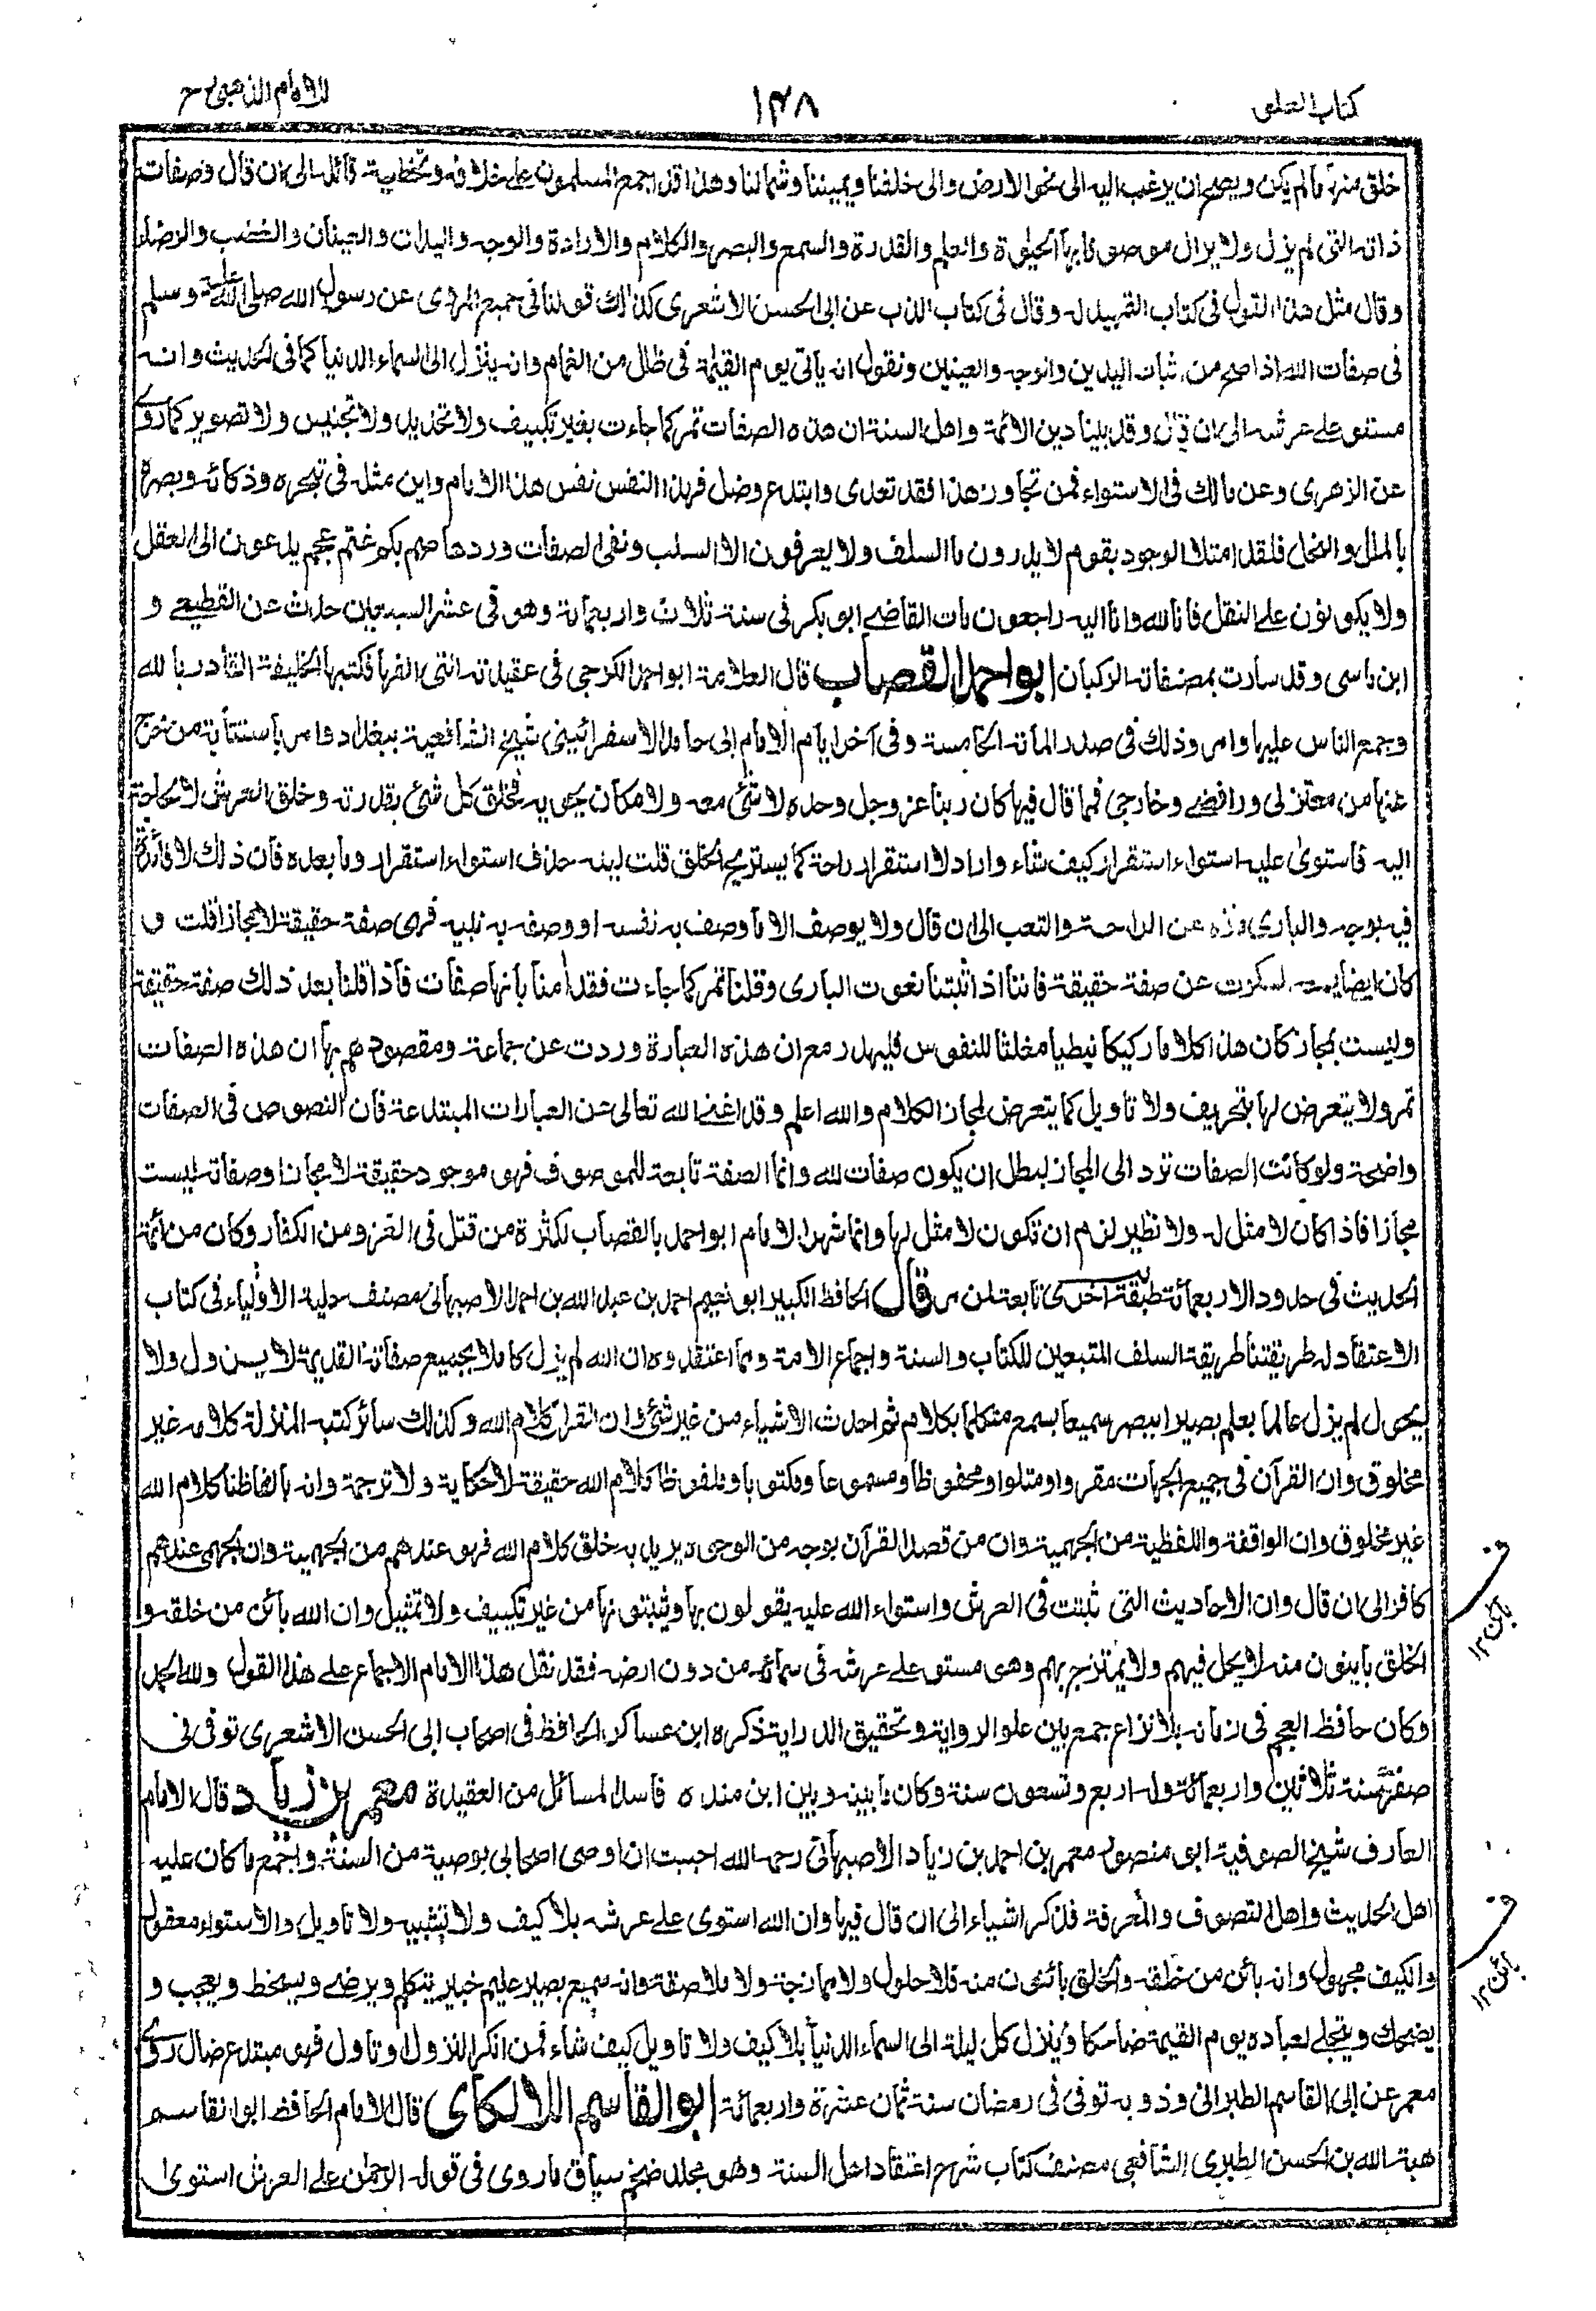 كتاب العلو
١٤٨
للامام الذهبي رح
خلق منها ما لم يكن ويصح ان يرغب اليه الى نحو الارض والى خلفنا ويميننا وشمالنا وهذا قد اجمع المسلمون على خلافه وتخطية قائله الى ان قال وصفات
ذاته التى لم يزل ولا يزال موصوفا بها الحيوة والعلم والقدرة والسمع والبصر والكلام والارادة والوجه واليدان والعينان والغضب والرضاء
وقال مثل هذا القول فى كتاب التمهيد له وقال فى كتاب الذب عن ابى الحسن الاشعرى كذلك قولنا فى جميع المروى عن رسول الله صلى الله عليه وسلم
فى صفات الله اذا صح من اثبات اليدين والوجه والعينين ونقول انه ياتى يوم القيمة فى ظلل من الغمام وانه ينزل الى السماء الدنيا كما فى الحديث وانه
مستو على عرشه الى ان قال وقد بينا دين الائمة واهل السنة ان هذه الصفات تمر كما جاءت بغير تكييف ولا تحديد ولا تجنيس ولا تصوير كما روى
عن الزهرى وعن مالك فى الاستواء فمن تجاوز هذا فقد تعدى وابتدع وضل فهذا النفس نفس هذا الامام واين مثله فى تبحره وذكائه وبصره
بالملل والنحل فلقد امتلا الوجود بقوم لا يدرون ما السلف ولا يعرفون الا السلب ونفى الصفات وردها صم بكم غتم عجم يدعون الى العقل
ولا يكونون على النقل فانا لله وانا اليه راجعون مات القاضى ابو بكر فى سنة ثلاث واربعمائة وهو فى عشر السبعين حدث عن القطيعى و
ابن ماسى وقد سارت بمصنفاته الركبان ابو احمد القصاب قال العلامة ابو احمد الكرجى فى عقيدته التى الفها فكتبها الخليفة القادر بالله
وجمع الناس عليها وامر وذلك فى صدر المائة الخامسة وفى آخر ايام الامام ابى حامد الاسفرائينى شيخ الشافعية ببغداد وامر باستتابة من خرج
عنها من معتزلى ورافضى وخارجى فمما قال فيها كان ربنا عز وجل وحده لا شئ معه ولا مكان يحويه فخلق كل شئ بقدرته وخلق العرش لا لحاجة
اليه فاستوى عليه استواء استقرار كيف شاء واراد لا استقرار راحة كما يستريح الخلق قلت ليته حذف استواء استقرار وما بعده فان ذلك لا فائدة
فيه بوجه والبارى منزه عن الراحة والتعب الى ان قال ولا يوصف الا بما وصف به نفسه او وصفه به نبيه فهى صفة حقيقة لا مجازا قلت و
كان ايضا يسعه السكوت عن صفة حقيقة فاننا اذا اثبتنا نعوت البارى وقلنا تمر كما جاءت فقد آمنا بانها صفات فاذا قلنا بعد ذلك صفة حقيقة
وليست بمجاز كان هذا كلاما ركيكا نبطيا مغلثا للنفوس فليهدر مع ان هذه العبارة وردت عن جماعة ومقصودهم بها ان هذه الصفات
تمر ولا يتعرض لها بتحريف ولا تاويل كما يتعرض لمجاز الكلام والله اعلم وقد اغنى الله تعالى عن العبارات المبتدعة فان النصوص فى الصفات
واضحة ولو كانت الصفات ترد الى المجاز لبطل ان يكون صفات لله وانما الصفة تابعة للموصوف فهو موجود حقيقة لا مجازا وصفاته ليست
مجازا فاذا كان لا مثل له ولا نظير لزم ان تكون لا مثل لها وانما شهر الامام ابو احمد بالقصاب لكثرة من قتل فى الغزو من الكفار وكان من ائمة
الحديث فى حدود الاربعمائة طبقة اخرى تابعة لمن مر قال الحافظ الكبير ابو نعيم احمد بن عبد الله بن احمد الاصبهانى مصنف حلية الاولياء فى كتاب
الاعتقاد له طريقتنا طريقة السلف المتبعين للكتاب والسنة واجماع الامة ومما اعتقدوه ان الله لم يزل كاملا بجميع صفاته القديمة لا يزول ولا
يحول لم يزل عالما بعلم بصيرا ببصر سميعا بسمع متكلما بكلام ثم احدث الاشياء من غير شئ وان القرآن كلام الله وكذلك سائر كتبه المنزلة كلامه غير
مخلوق وان القرآن فى جميع الجهات مقروا ومتلوا ومحفوظا ومسموعا ومكتوبا وملفوظا كلام الله حقيقة لا حكاية ولا ترجمة وانه بالفاظنا كلام الله
غير مخلوق وان الواقفة واللفظية من الجهمية وان من قصد القرآن بوجه من الوجوه يريد به خلق كلام الله فهو عندهم من الجهمية وان الجهمى عندهم
كافر الى ان قال وان الاحاديث التى ثبتت فى العرش واستواء الله عليه يقولون بها ويثبتونها من غير تكييف ولا تمثيل وان الله بائن من خلقه وا
لخلق باينون منه لا يحل فيهم ولا يمتزج بهم وهو مستو على عرشه فى سمائه من دون ارضه فقد نقل هذا الامام الاجماع على هذا القول ولله الحمد
وكان حافظ العجم فى زمانه بلا نزاع جمع بين علو الرواية وتحقيق الدراية ذكره ابن عساكر الحافظ فى اصحاب ابى الحسن الاشعرى توفى فى
صفر سنة ثلاثين واربعمائة وله اربع وتسعون سنة وكان ما بينه وبين ابن منده فاسدا لمسائل من العقيدة معمر بن زياد قال الامام
العارف شيخ الصوفية ابو منصور معمر بن احمد بن زياد الاصبهانى رحمه الله احببت ان اوصى اصحابى بوصية من السنة واجمع ما كان عليه
اهل الحديث واهل التصوف والمعرفة فذكر اشياء الى ان قال فيها وان الله استوى على عرشه بلا كيف ولا تشبيه ولا تاويل والاستواء معقول
والكيف مجهول وانه بائن من خلقه والخلق بائنون منه فلا حلول ولا ممازجة ولا ملاصقة وانه سميع بصير عليم خبير يتكلم ويرضى ويسخط ويعجب و
يضحك ويتجلى لعباده يوم القيمة ضاحكا وينزل كل ليلة الى السماء الدنيا بلا كيف ولا تاويل كيف شاء فمن انكر النزول او تاول فهو مبتدع ضال روى
معمر عن ابى القاسم الطبرانى وذويه توفى فى رمضان سنة ثمان عشرة واربعمائة ابو القاسم اللالكاى قال الامام الحافظ ابو القاسم
هبة الله بن الحسن الطبرى الشافعى مصنف كتاب شرح اعتقاد اهل السنة وهو مجلد ضخم سياق ما روى فى قوله الرحمن على العرش استوى
بائن ١٢
بائن ١٢